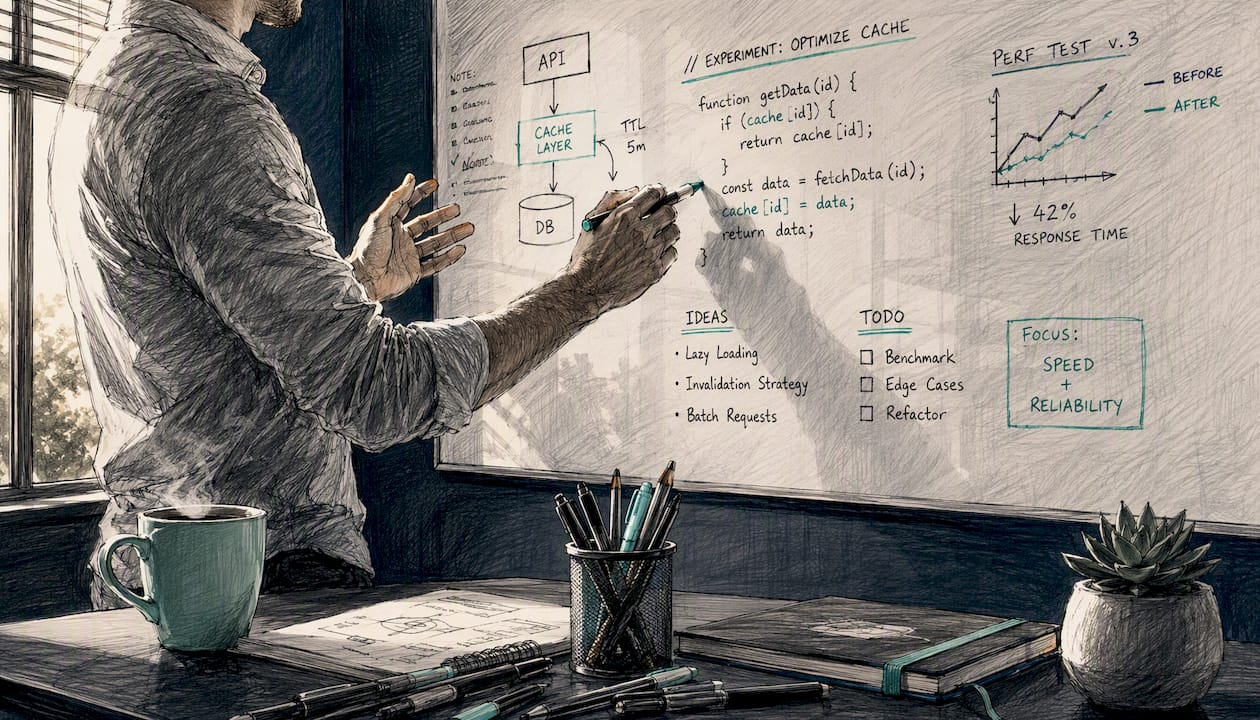 NOTE:
API
CACHE
LAYER
TTL
5m
DB
// EXPERIMENT: OPTIMIZE CACHE
function getData(id) {
if (cache[id]) {
return cache[id];
}
const data = fetchData(id);
cache[id] = data;
return data;
}
PERF TEST v.3
BEFORE
AFTER
↓ 42%
RESPONSE TIME
IDEAS
• Lazy Loading
• Invalidation Strategy
• Batch Requests
TODO
☐ Benchmark
☐ Edge Cases
☐ Refactor
FOCUS:
SPEED
+
RELIABILITY